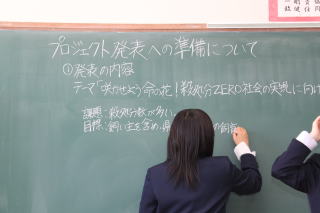 プロジェクト発表への準備について
①発表の内容
テーマ「咲かせよう命の花！殺処分ZERO社会の実現に向け
課題：殺処分数が多い。
目標：飼い主を含め、県
の飼育